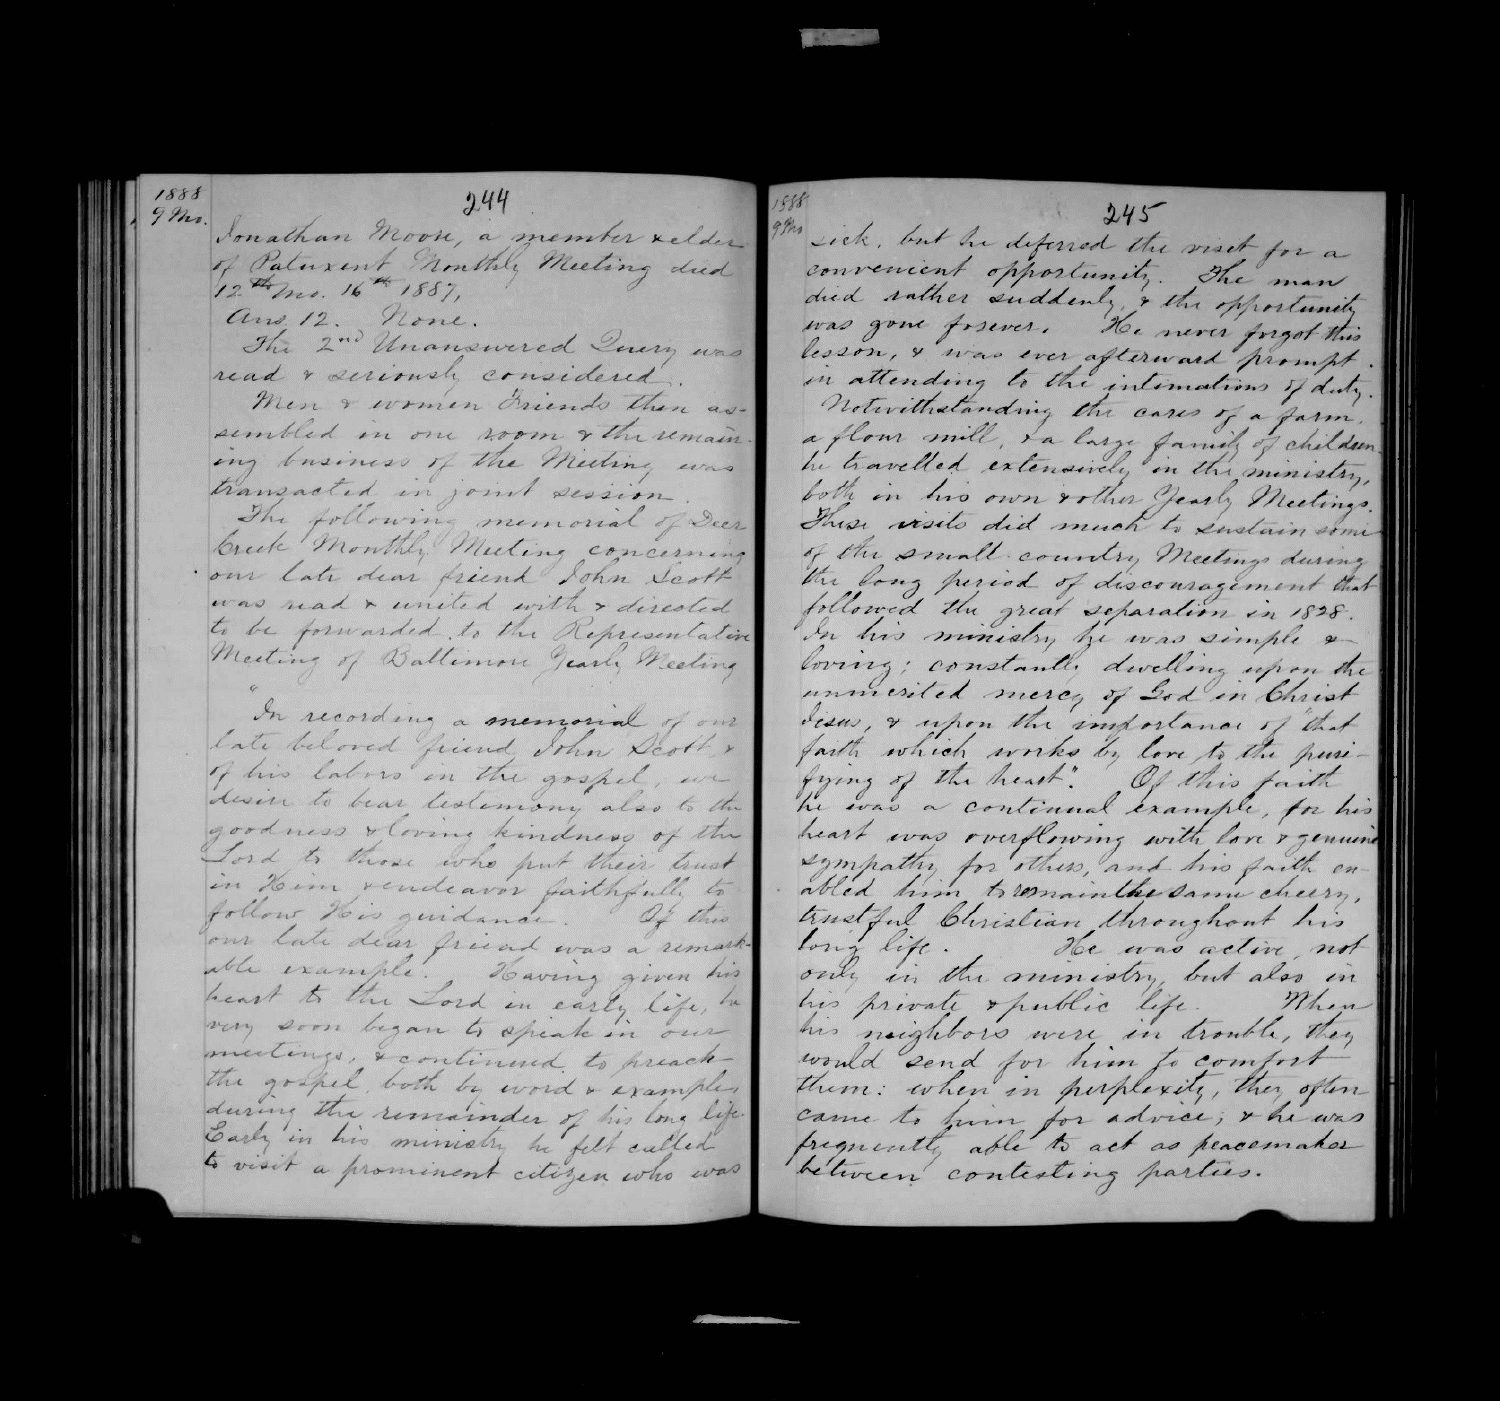 1888
9 Mo.
244
Jonathan Moore, a member & elder
of Patuxent Monthly Meeting died
12th Mo. 16th 1887,
Ans. 12. None.
The 2nd Unanswered Query was
read & seriously considered.
Men & women Friends then as-
sembled in one room & the remain-
ing business of the Meeting was
transacted in joint session.
The following memorial of Deer
Creek Monthly Meeting concerning
our late dear friend John Scott
was read & united with & directed
to be forwarded to the Representative
Meeting of Baltimore Yearly Meeting
"In recording a memorial of our
late beloved friend John Scott, &
of his labors in the gospel, we
desire to bear testimony also to the
goodness & loving kindness of the
Lord to those who put their trust
in Him & endeavor faithfully to
follow His guidance. Of this
our late dear friend was a remark-
able example. Having given his
heart to the Lord in early life, he
very soon began to speak in our
meetings, & continued to preach
the gospel both by word & example
during the remainder of his long life.
Early in his ministry he felt called
to visit a prominent citizen who was
1888
9 Mo
245
sick, but he deferred the visit for a
convenient opportunity. The man
died rather suddenly, & the opportunity
was gone forever. He never forgot this
lesson, & was ever afterward prompt
in attending to the intimations of duty.
Notwithstanding the cares of a farm,
a flour mill, & a large family of children
he travelled extensively in the ministry,
both in his own & other Yearly Meetings.
These visits did much to sustain some
of the small country Meetings during
the long period of discouragement that
followed the great separation in 1828.
In his ministry he was simple &
loving; constantly dwelling upon the
unmerited mercy of God in Christ
Jesus, & upon the importance of "that
faith which works by love to the puri-
fying of the heart". Of this faith
he was a continual example, for his
heart was overflowing with love & genuine
sympathy for others, and his faith en-
abled him to remain the same cheery,
trustful Christian throughout his
long life. He was active, not
only in the ministry, but also in
his private & public life. When
his neighbors were in trouble, they
would send for him to comfort
them: when in perplexity, they often
came to him for advice; & he was
frequently able to act as peacemaker
between contesting parties.